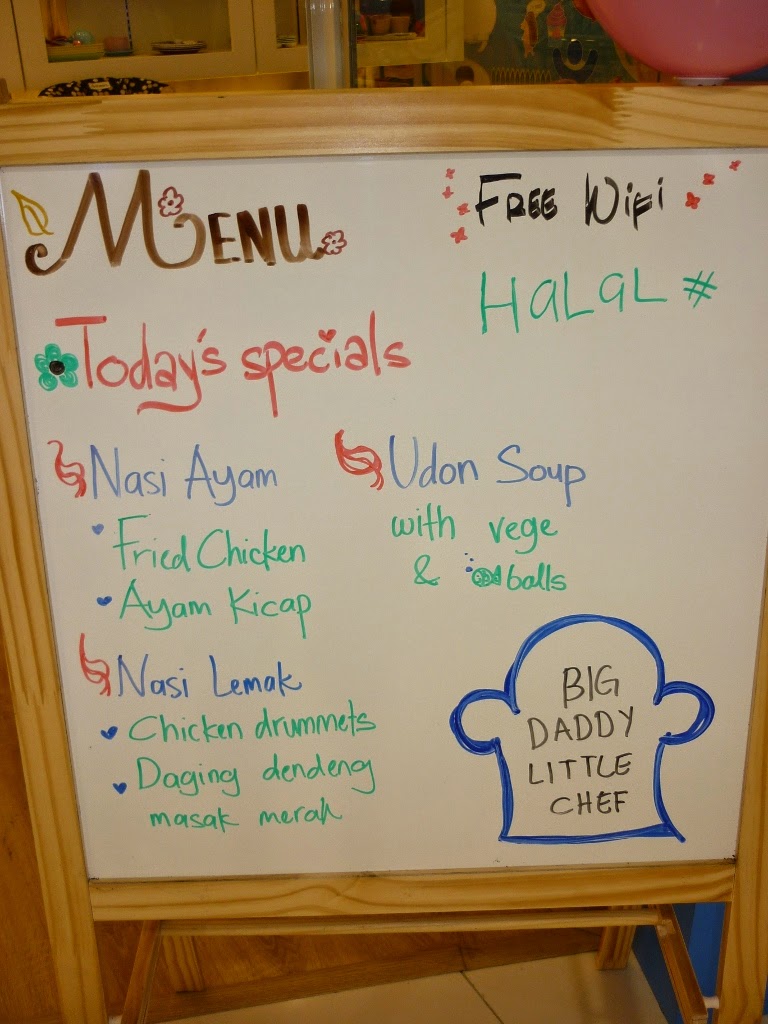 MENU
FREE WiFi
HaLaL #
Today's specials
Nasi Ayam
Fried Chicken
Ayam Kicap
Nasi Lemak
Chicken drummets
Daging dendeng
masak merah
Udon Soup
with vege
& balls
BIG
DADDY
LITTLE
CHEF